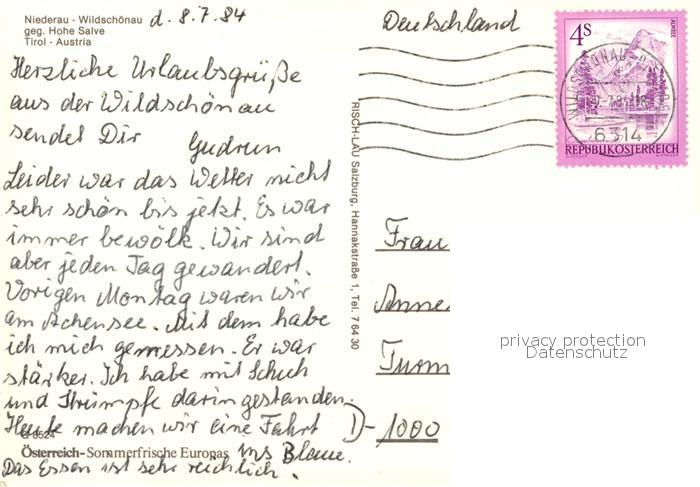 Niederau - Wildschönau d. 8.7.84
geg. Hohe Salve
Tirol - Austria
Herzliche Urlaubsgrüße
aus der Wildschönau
sendet Dir Gudrun
Leider war das Wetter nicht
sehr schön bis jetzt. Es war
immer bewölk. Wir sind
aber jeden Tag gewandert.
Vorigen Montag waren wir
am Achensee. Mit dem habe
ich mich gemessen. Er war
stärker. Ich habe mit Schuh
und Strümpfe darin gestanden.
Heute machen wir eine Fahrt
ins Blaue.
Das Essen ist sehr reichlich.
Österreich-Sommerfrische Europas
RISCH-LAU Salzburg, Hannakstraße 1, Tel. 7 64 30
Deutschland
4S
ALMSEE
6314
REPUBLIK ÖSTERREICH
Frau
Anne
Turm
D-1000
privacy protection
Datenschutz